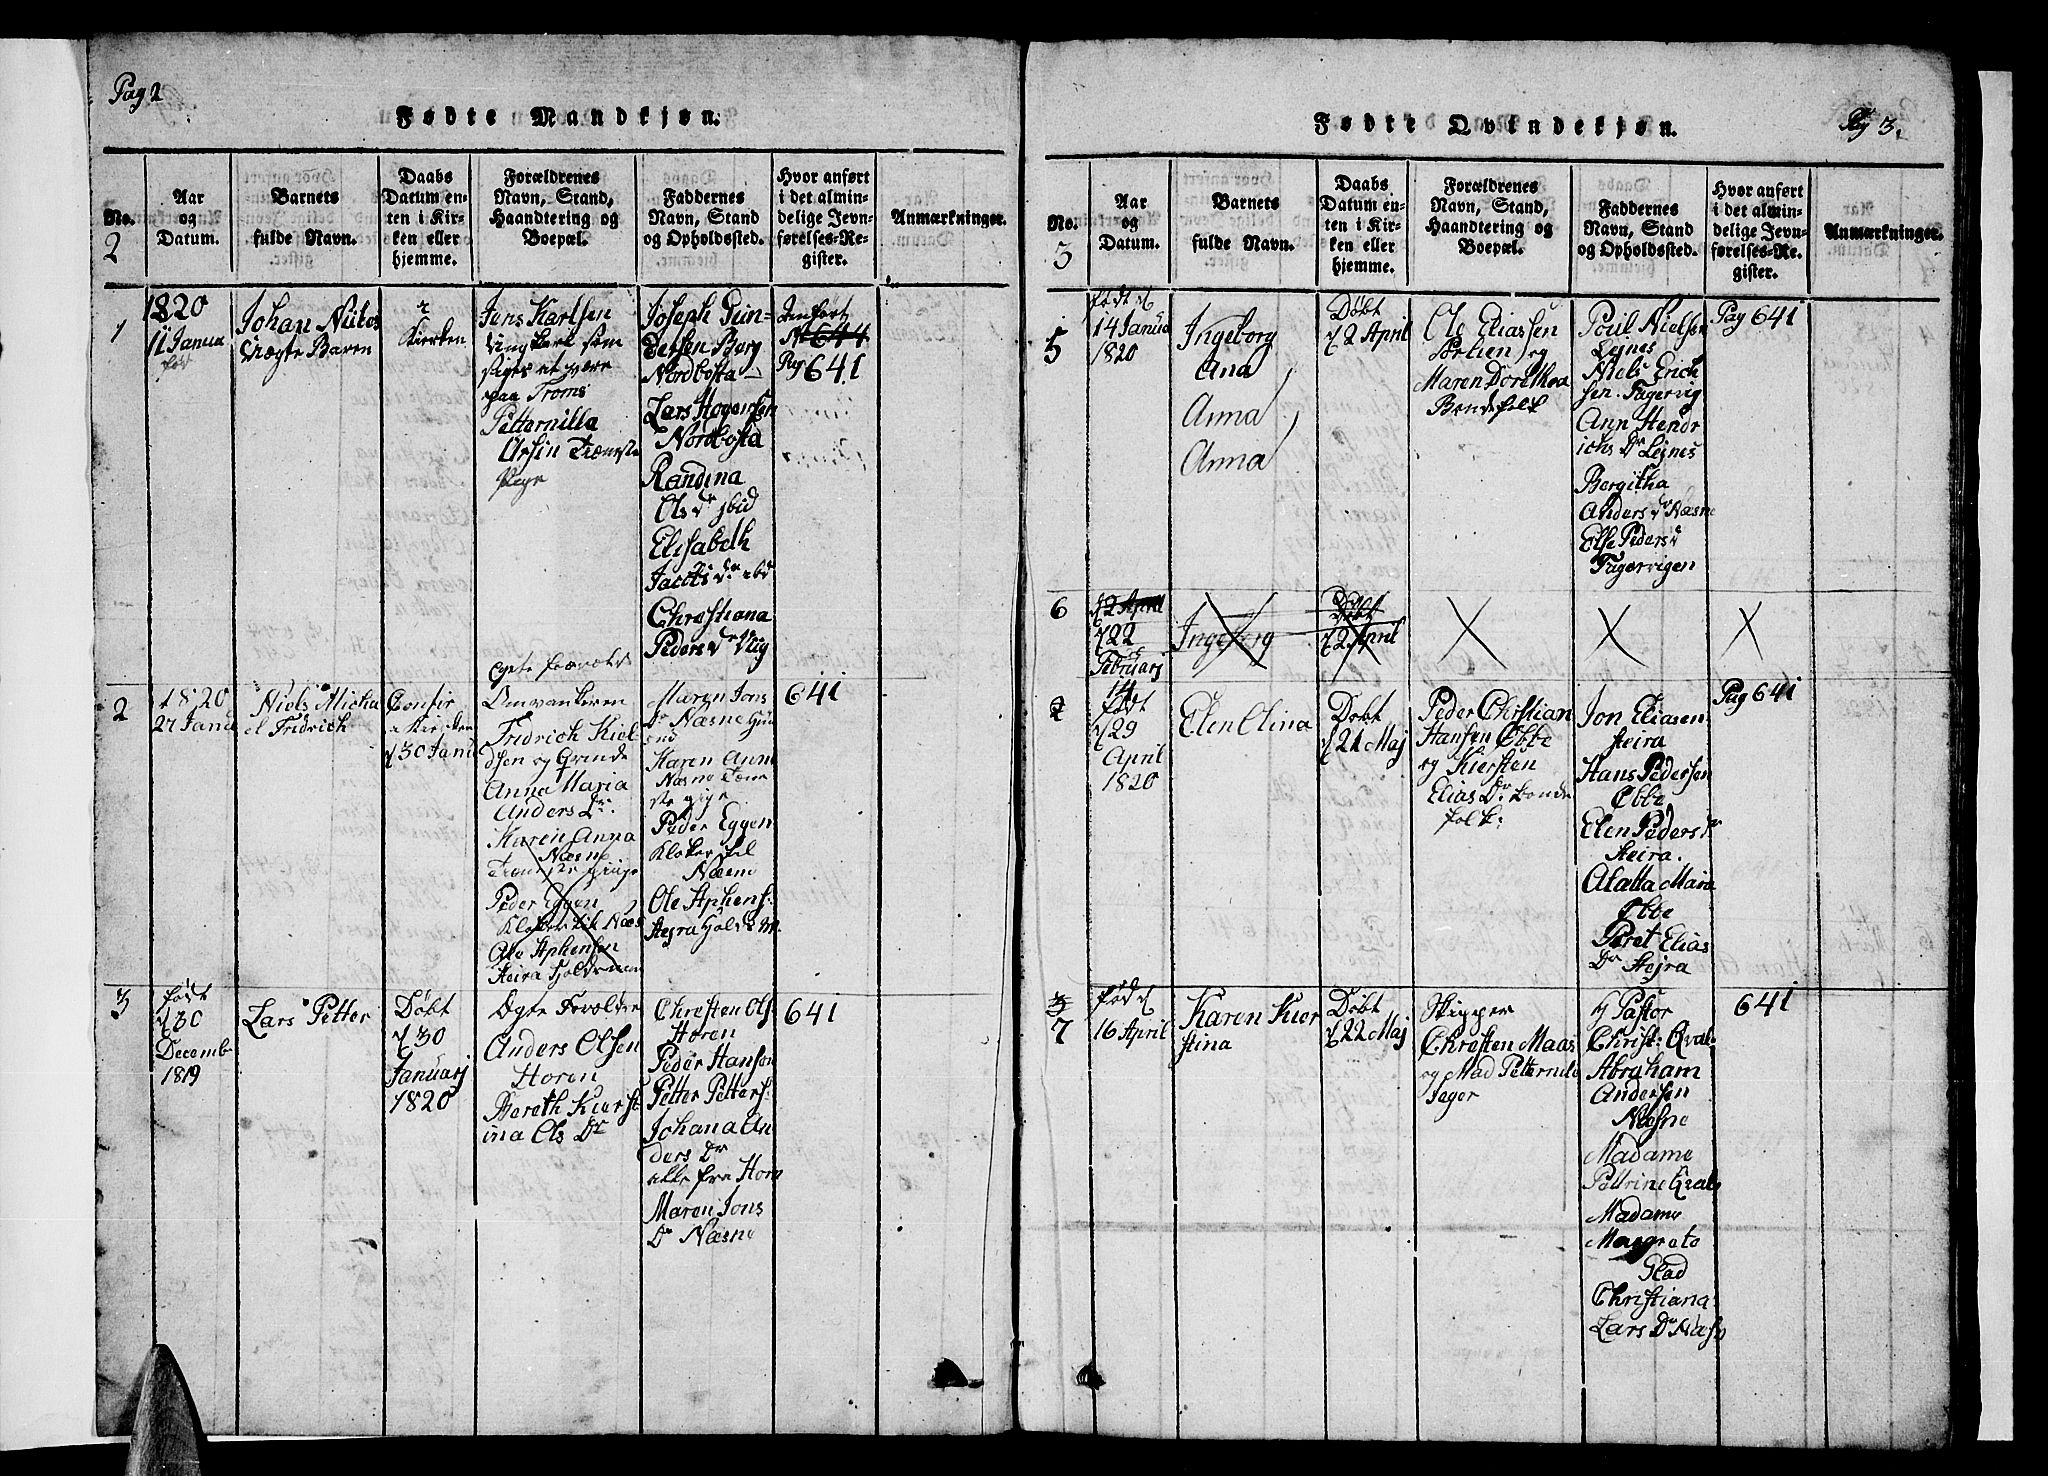 Pag 2
Fødte Mandkjøn.
No.
2
Aar
og
Datum.
Barnets
fulde Navn.
Daabs
Datum en-
ten i Kir-
ken eller
hjemme.
Forældrenes
Navn, Stand,
Haandtering og
Boepæl.
Faddernes
Navn, Stand
og Opholdssted.
Hvor anført
i det almin-
delige Jevn-
førelses-Re-
gister.
Anmærkninger.
1
1820
11 Janua
fød
Johan
Uægte Baren
i
Kierken
Jens Karlsen
Ungkarl som
siges at være
paa Troms
Petternilla
Pige
Joseph
Berg
Nordbosta
Lars Hogensen
Nordbosta
Randina
Ols Dr ibid
Elisabeth
Jacobs Dr ibd
Christiana
Peders Dr Vig
Pag
641
2
1820
27 Janu
Niels Micha
el Fridrich
Confir
i Kirken
d 30 Janu
Egte Foreold
Omvankeren
Fridrich Kiel
dsen og Qvinde
Anna Maria
Anders Dr
Karen Anna
Næsne
Peder Eggen
Klokker til Næs
Ole Stphensen
Steira
Maren Jons
Dr Næsne
Karen Anna
Næsne
Peder Eggen
Kloker til
Næsne
Ole Stphens:
Stejra
641
3
født
d 30
Decemb
1819
Lars Petter
Døbt
d 30
Januarj
1820
Egte Forældre
Anders Olsen
Horen
Bereth Kierst
ina Ols Dr
Christen Ols
Horen
Peder Hansen
Petter Petters:
Johana An
ders Dr
alle fra Horn
Maren Jons
Dr Næsne
641
Pag 3.
Fødte Qvindekjøn.
No.
3
Aar
og
Datum.
Barnets
fulde Navn.
Daabs
Datum en-
ten i Kir-
ken eller
hjemme.
Forældrenes
Navn, Stand,
Haandtering og
Boepæl.
Faddernes
Navn, Stand
og Opholdssted.
Hvor anført
i det almin-
delige Jevn-
førelses-Re-
gister.
Anmærkninger.
5
født d
14 Janua
1820
Ingeborg
Ana
Anna
Anna
Døbt
d 2 April
Ole Eliassen
og
Maren Dorethea
Bondefolk
Poul Nielsen
Lejnes
Niels Erich
sen Fagervig
Ann Hendr
ichs Dr Lejnes
Bergitha
Anders Dr Næsne
Else Peders Dr
Fagervigen
Pag 641
6
d 2 April
d 22
Februarj
Ingeborg
Døbt
d 2 April
2
14
født
d 29
April
1820
Elen Elina
Døbt
d 21 Maj
Peder Christian
Hansen Ebbe
og Kiersten
Elias Dr Bonde
folk:
Jon Eliasen
Steira
Hans Pedersen
Ebbe
Elen Peders Dr
Steira.
Alatta Maria
Ebbe
Peret Elias
Dr Stejra
Pag 641
3
7
fød d
16 April
Karen Kier
stina
Døbt
d 22 Maj
Skipper
Christen Maas
og Mad Petternile
Jager
Hr Pastor
Christ: Qval.
Abraham
Andersen
Næsne
Madame
Pettrine Qvale
Madame
Margrete
Glad
Christiana
Lars Dr Næsn
641